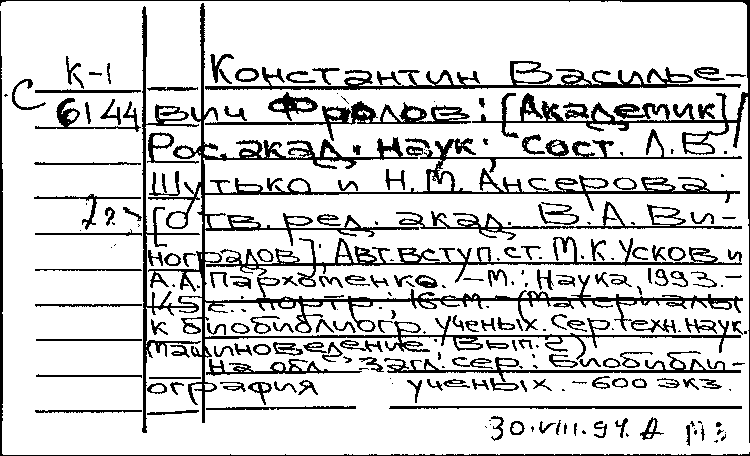 К-1
Константин Василье-
С 6144 вич Фролов: [Академик] /
Рос. акад. наук; Сост. Л.В.
Шутько и Н.М. Ансерова;
[Отв. ред. акад. В.А. Ви-
ноградов]; Авт. вступ. ст. М.К. Усков и
А.А. Пархоменко. – М.: Наука, 1993. –
145 с.: портр.; 16 см. – (Материалы
к биобиблиогр. ученых. Сер. техн. наук.
Машиноведение; Вып. 2)
На обл. загл. сер.: Биобибли-
ография ученых. – 600 экз.
30.VIII.94. А